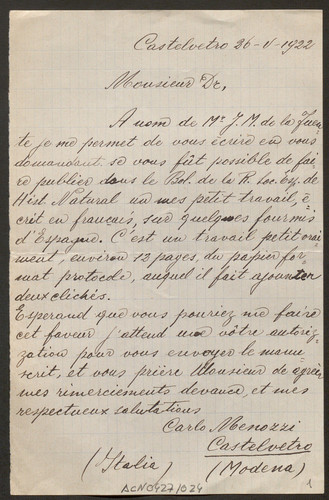 Castelvetro 26-V-1922
Monsieur Dr,
A nom de Mr J. M. de la Fuen-
te je me permet de vous écrire en vous
domandant, se vous fût possible de fai-
re publier dans le Bol. de la R. Soc. Esp. de
Hist. Natural un mes petit travail, é-
crit en français, sur quelques fourmis
d'Espagne. C'est un travail petit vrai-
ment, environ 12 pages, du papier for-
mat protocole, auquel il fait ajouter
deux clichés.
Esperand que vous pouriez me faire
cet faveur j'attend une vôtre autoriz-
zation pour vous envoyer le manu-
scrit, et vous prière Monsieur de agréer
mes rimerciements devance, et mes
respectueux salutations
Carlo Menozzi
Castelvetro
(Italia) (Modena)
ACN0427/024
1